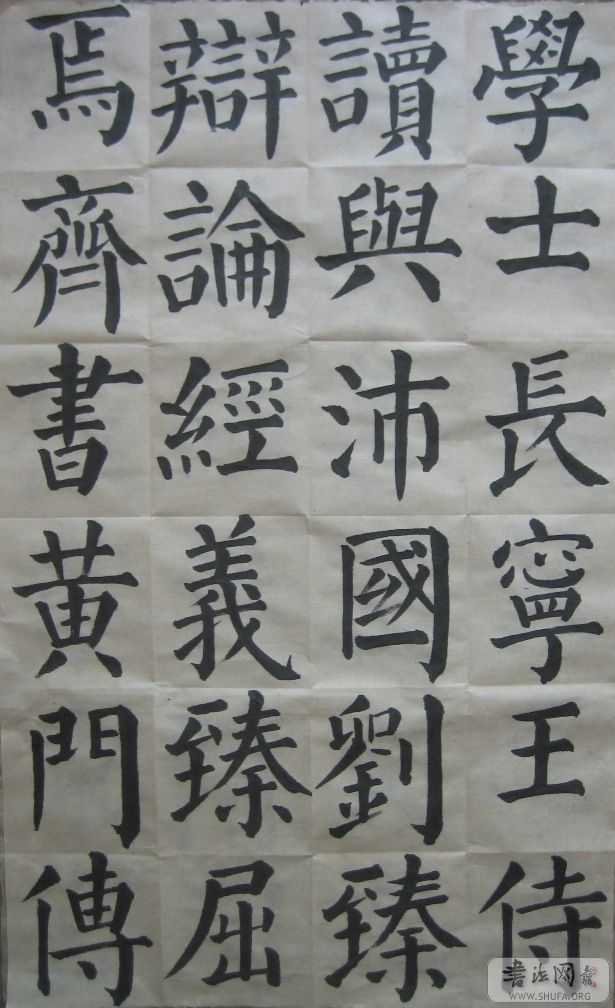 學士長寧王侍
讀與沛國劉臻
辯論經義臻屈
焉齊書黄門傳
書法网
WWW.SHUFA.ORG